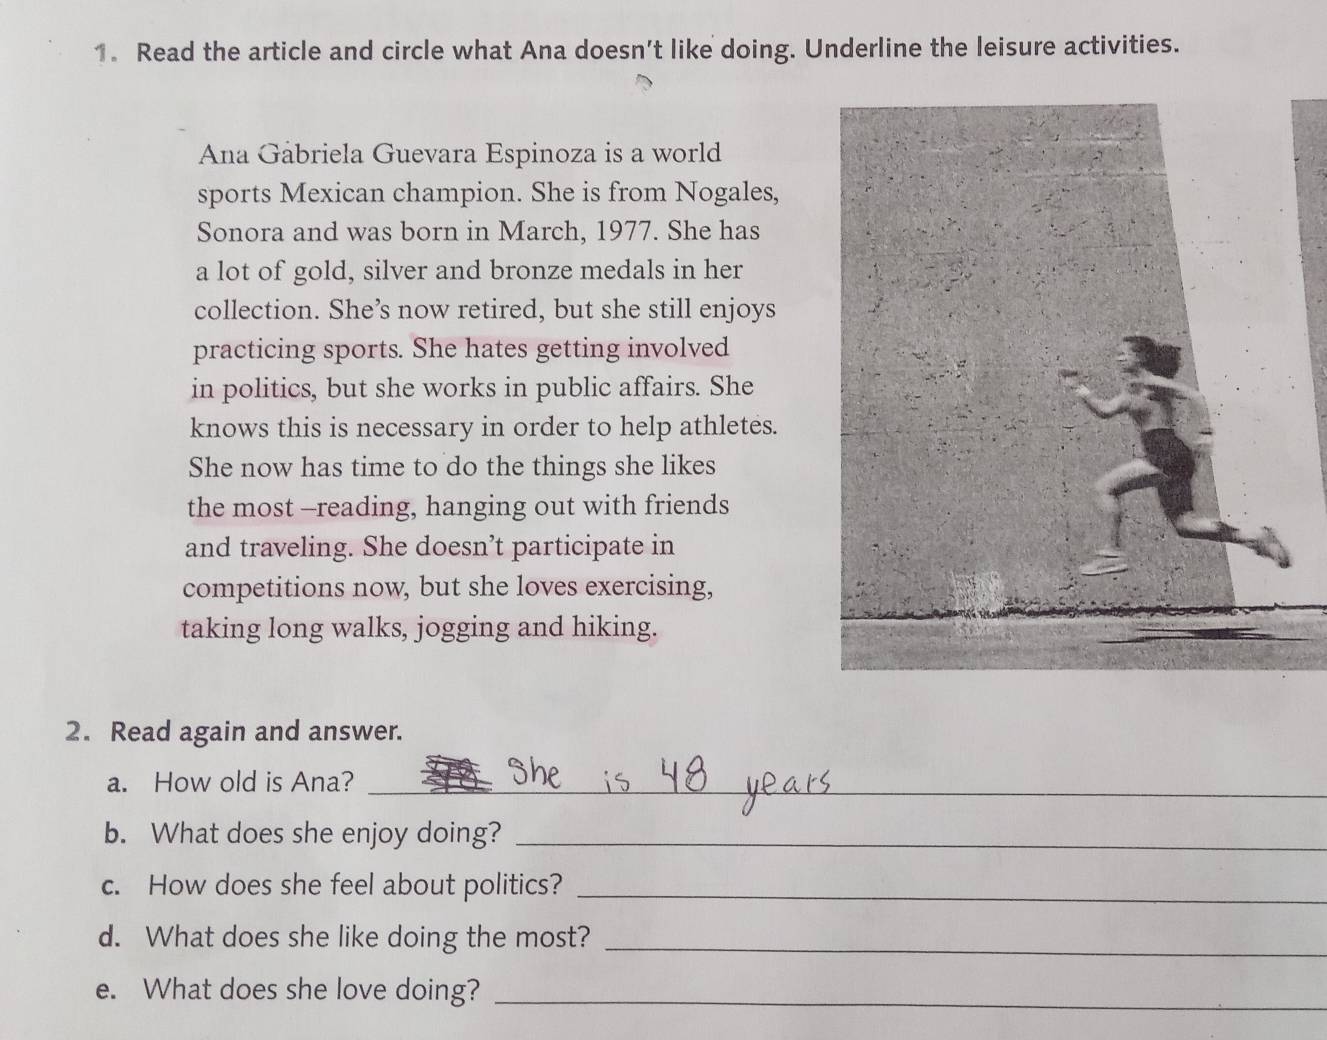 1. Read the article and circle what Ana doesn't like doing. Underline the leisure activities.
Ana Gabriela Guevara Espinoza is a world
sports Mexican champion. She is from Nogales,
Sonora and was born in March, 1977. She has
a lot of gold, silver and bronze medals in her
collection. She's now retired, but she still enjoys
practicing sports. She hates getting involved
in politics, but she works in public affairs. She
knows this is necessary in order to help athletes.
She now has time to do the things she likes
the most –reading, hanging out with friends
and traveling. She doesn't participate in
competitions now, but she loves exercising,
taking long walks, jogging and hiking.
2. Read again and answer.
a. How old is Ana? She is 48 years
b. What does she enjoy doing?
c. How does she feel about politics?
d. What does she like doing the most?
e. What does she love doing?